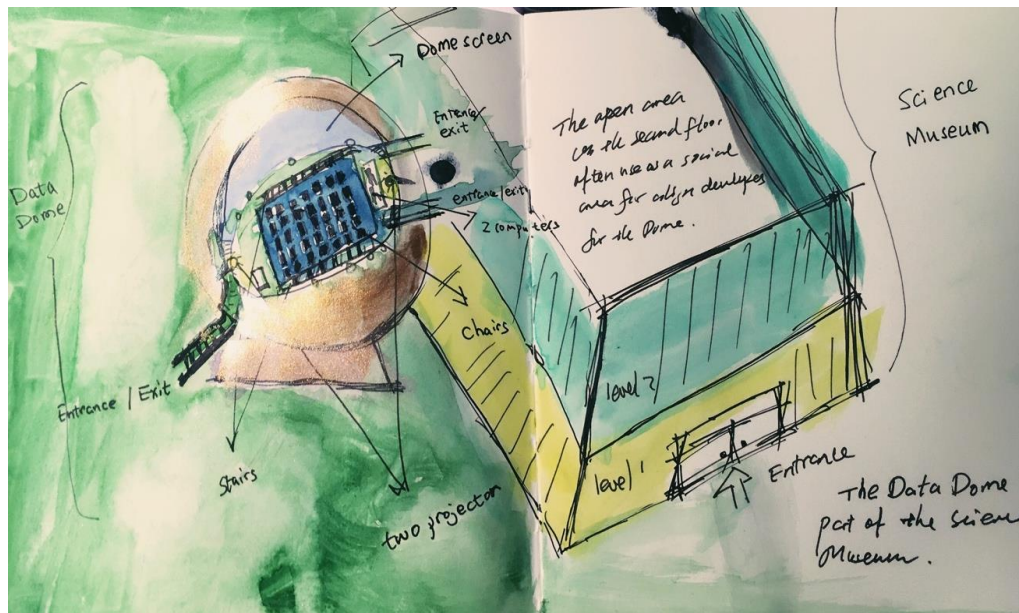 Dome screen
Entrance/
exit
entrance/exit
2 computers
Data
Dome
Chairs
Entrance / Exit
Stairs
two projector
The open area
on the second floor
often use as a social
area for
for the Dome.
Science
Museum
level 2
level 1
Entrance
The Data Dome
part of the Science
Museum.